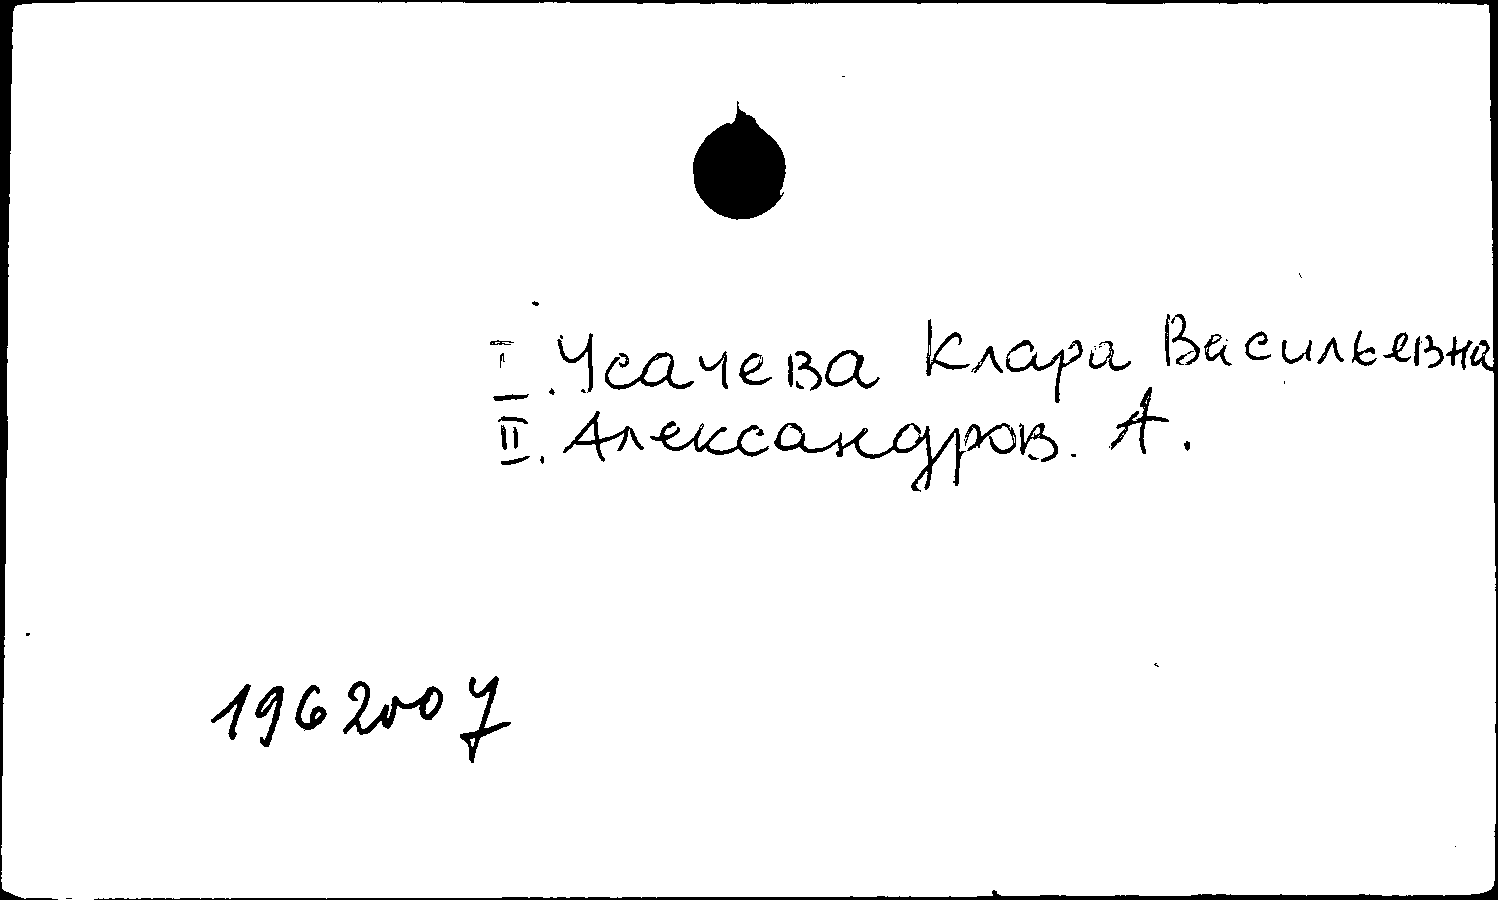 I. Усачева Клара Васильевна
II. Александров. А.
1962007